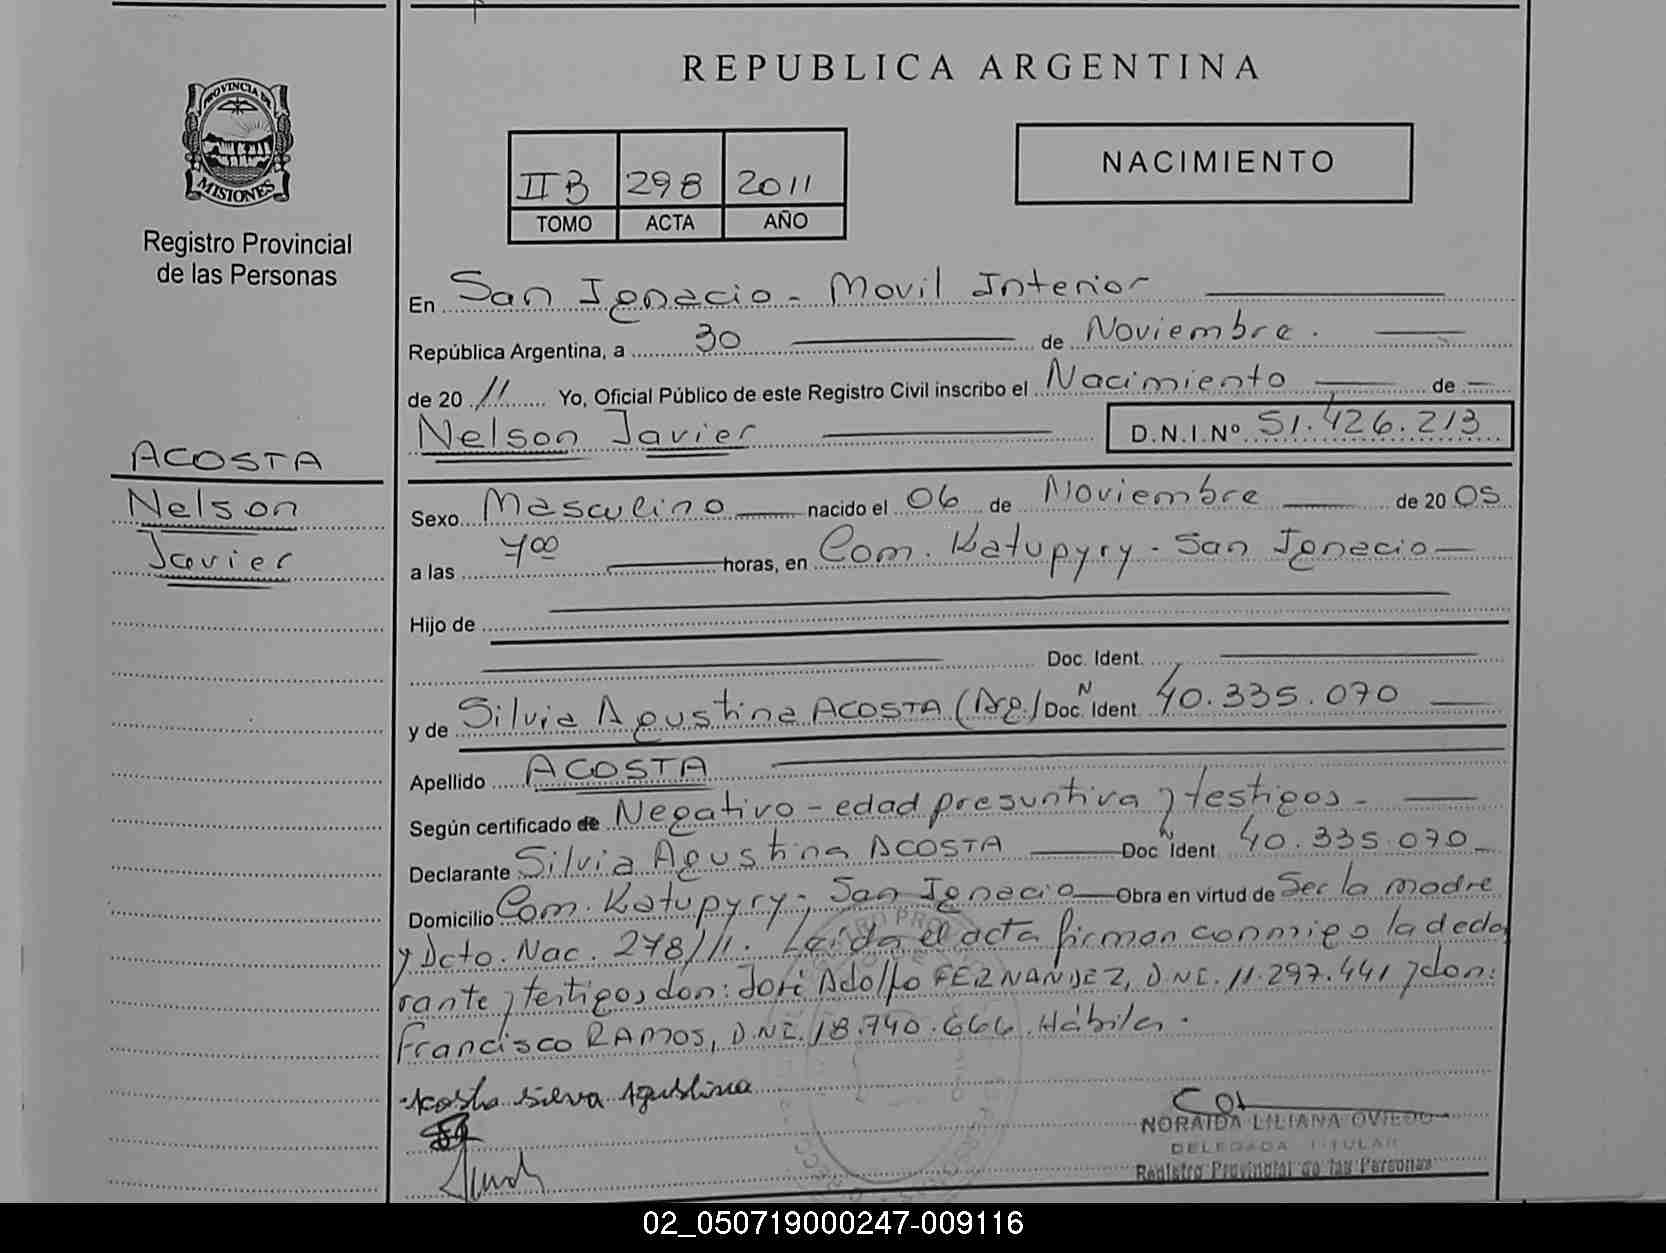 REPUBLICA ARGENTINA
PROVINCIA DE
MISIONES
Registro Provincial
de las Personas
II B 298 2011
TOMO ACTA AÑO
NACIMIENTO
En San Ignacio - Movil Interior
República Argentina, a 30 de Noviembre.
de 20 11 Yo, Oficial Público de este Registro Civil inscribo el Nacimiento de
Nelson Javier D.N.I.Nº 51.426.213
ACOSTA
Nelson
Javier
Sexo Masculino nacido el 06 de Noviembre de 20 05
a las 7 00 horas, en Com. Katupyry - San Ignacio
Hijo de
Doc. Ident.
y de Silvia Agustina ACOSTA (Arg.) Doc. N Ident 40.335.070
Apellido ACOSTA
Según certificado de Negativo - edad presuntiva y testigos -
Declarante Silvia Agustina ACOSTA Doc N Ident 40.335.070
Domicilio Com. Katupyry - San Ignacio Obra en virtud de Ser la madre
y Dcto. Nac. 278/11. Leída el acta firman conmigo la decla
rante y testigos don: José Adolfo FERNANDEZ, D.N.I. 11.297.441 y don:
Francisco RAMOS, D.N.I. 18.740.666. Hábiles.
Acosta Silvia Agustina
NORAIDA LILIANA OVIEDO
DELEGADA TITULAR
Registro Provincial de las Personas
02_050719000247-009116